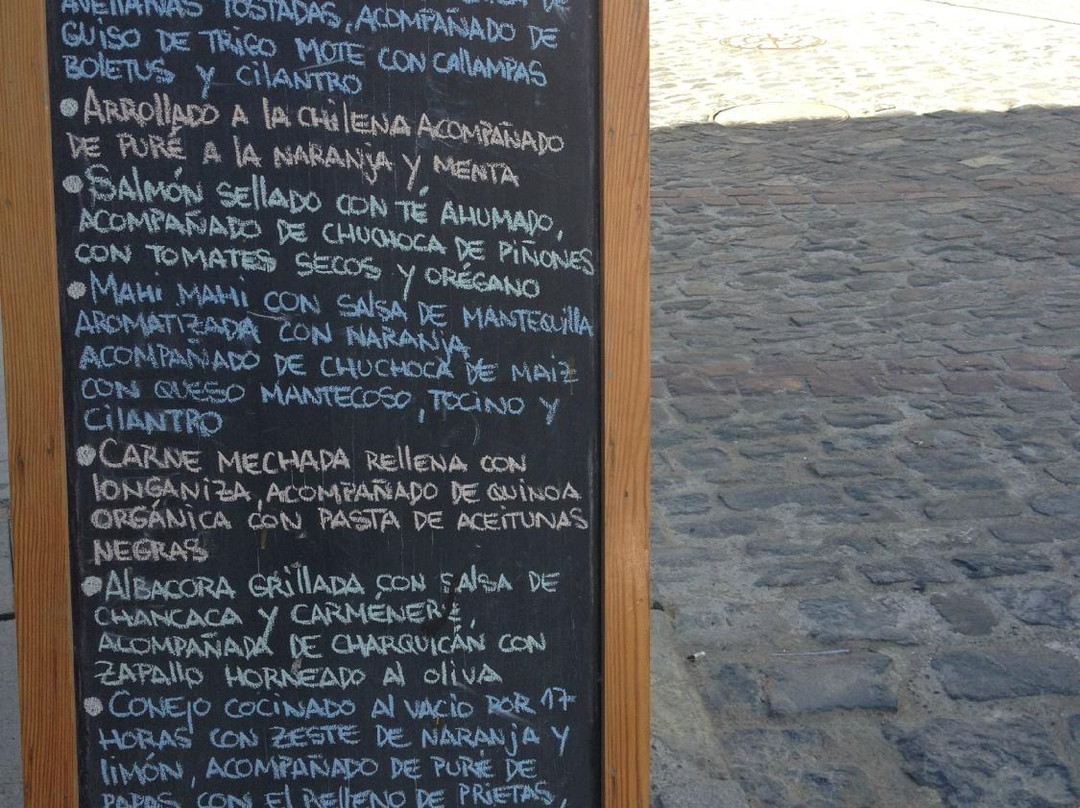 AVELLANAS TOSTADAS, ACOMPAÑADO DE
GUISO DE TRIGO MOTE CON CALLAMPAS
BOLETUS Y CILANTRO
• ARROLLADO A LA CHILENA ACOMPAÑADO
DE PURÉ A LA NARANJA Y MENTA
• SALMÓN SELLADO CON TÉ AHUMADO,
ACOMPAÑADO DE CHUCHOCA DE PIÑONES
CON TOMATES SECOS Y ORÉGANO
• MAHI MAHI CON SALSA DE MANTEQUILLA
AROMATIZADA CON NARANJA
ACOMPAÑADO DE CHUCHOCA DE MAIZ
CON QUESO MANTECOSO, TOCINO Y
CILANTRO
• CARNE MECHADA RELLENA CON
LONGANIZA, ACOMPAÑADO DE QUINOA
ORGÁNICA CON PASTA DE ACEITUNAS
NEGRAS
• ALBACORA GRILLADA CON SALSA DE
CHANCACA Y CARMÉNERE,
ACOMPAÑADA DE CHARQUICÁN CON
ZAPALLO HORNEADO AL OLIVA
• CONEJO COCINADO AL VACIO POR 17
HORAS CON ZESTE DE NARANJA Y
LIMÓN, ACOMPAÑADO DE PURÉ DE
PAPAS CON EL RELLENO DE PRIETAS,